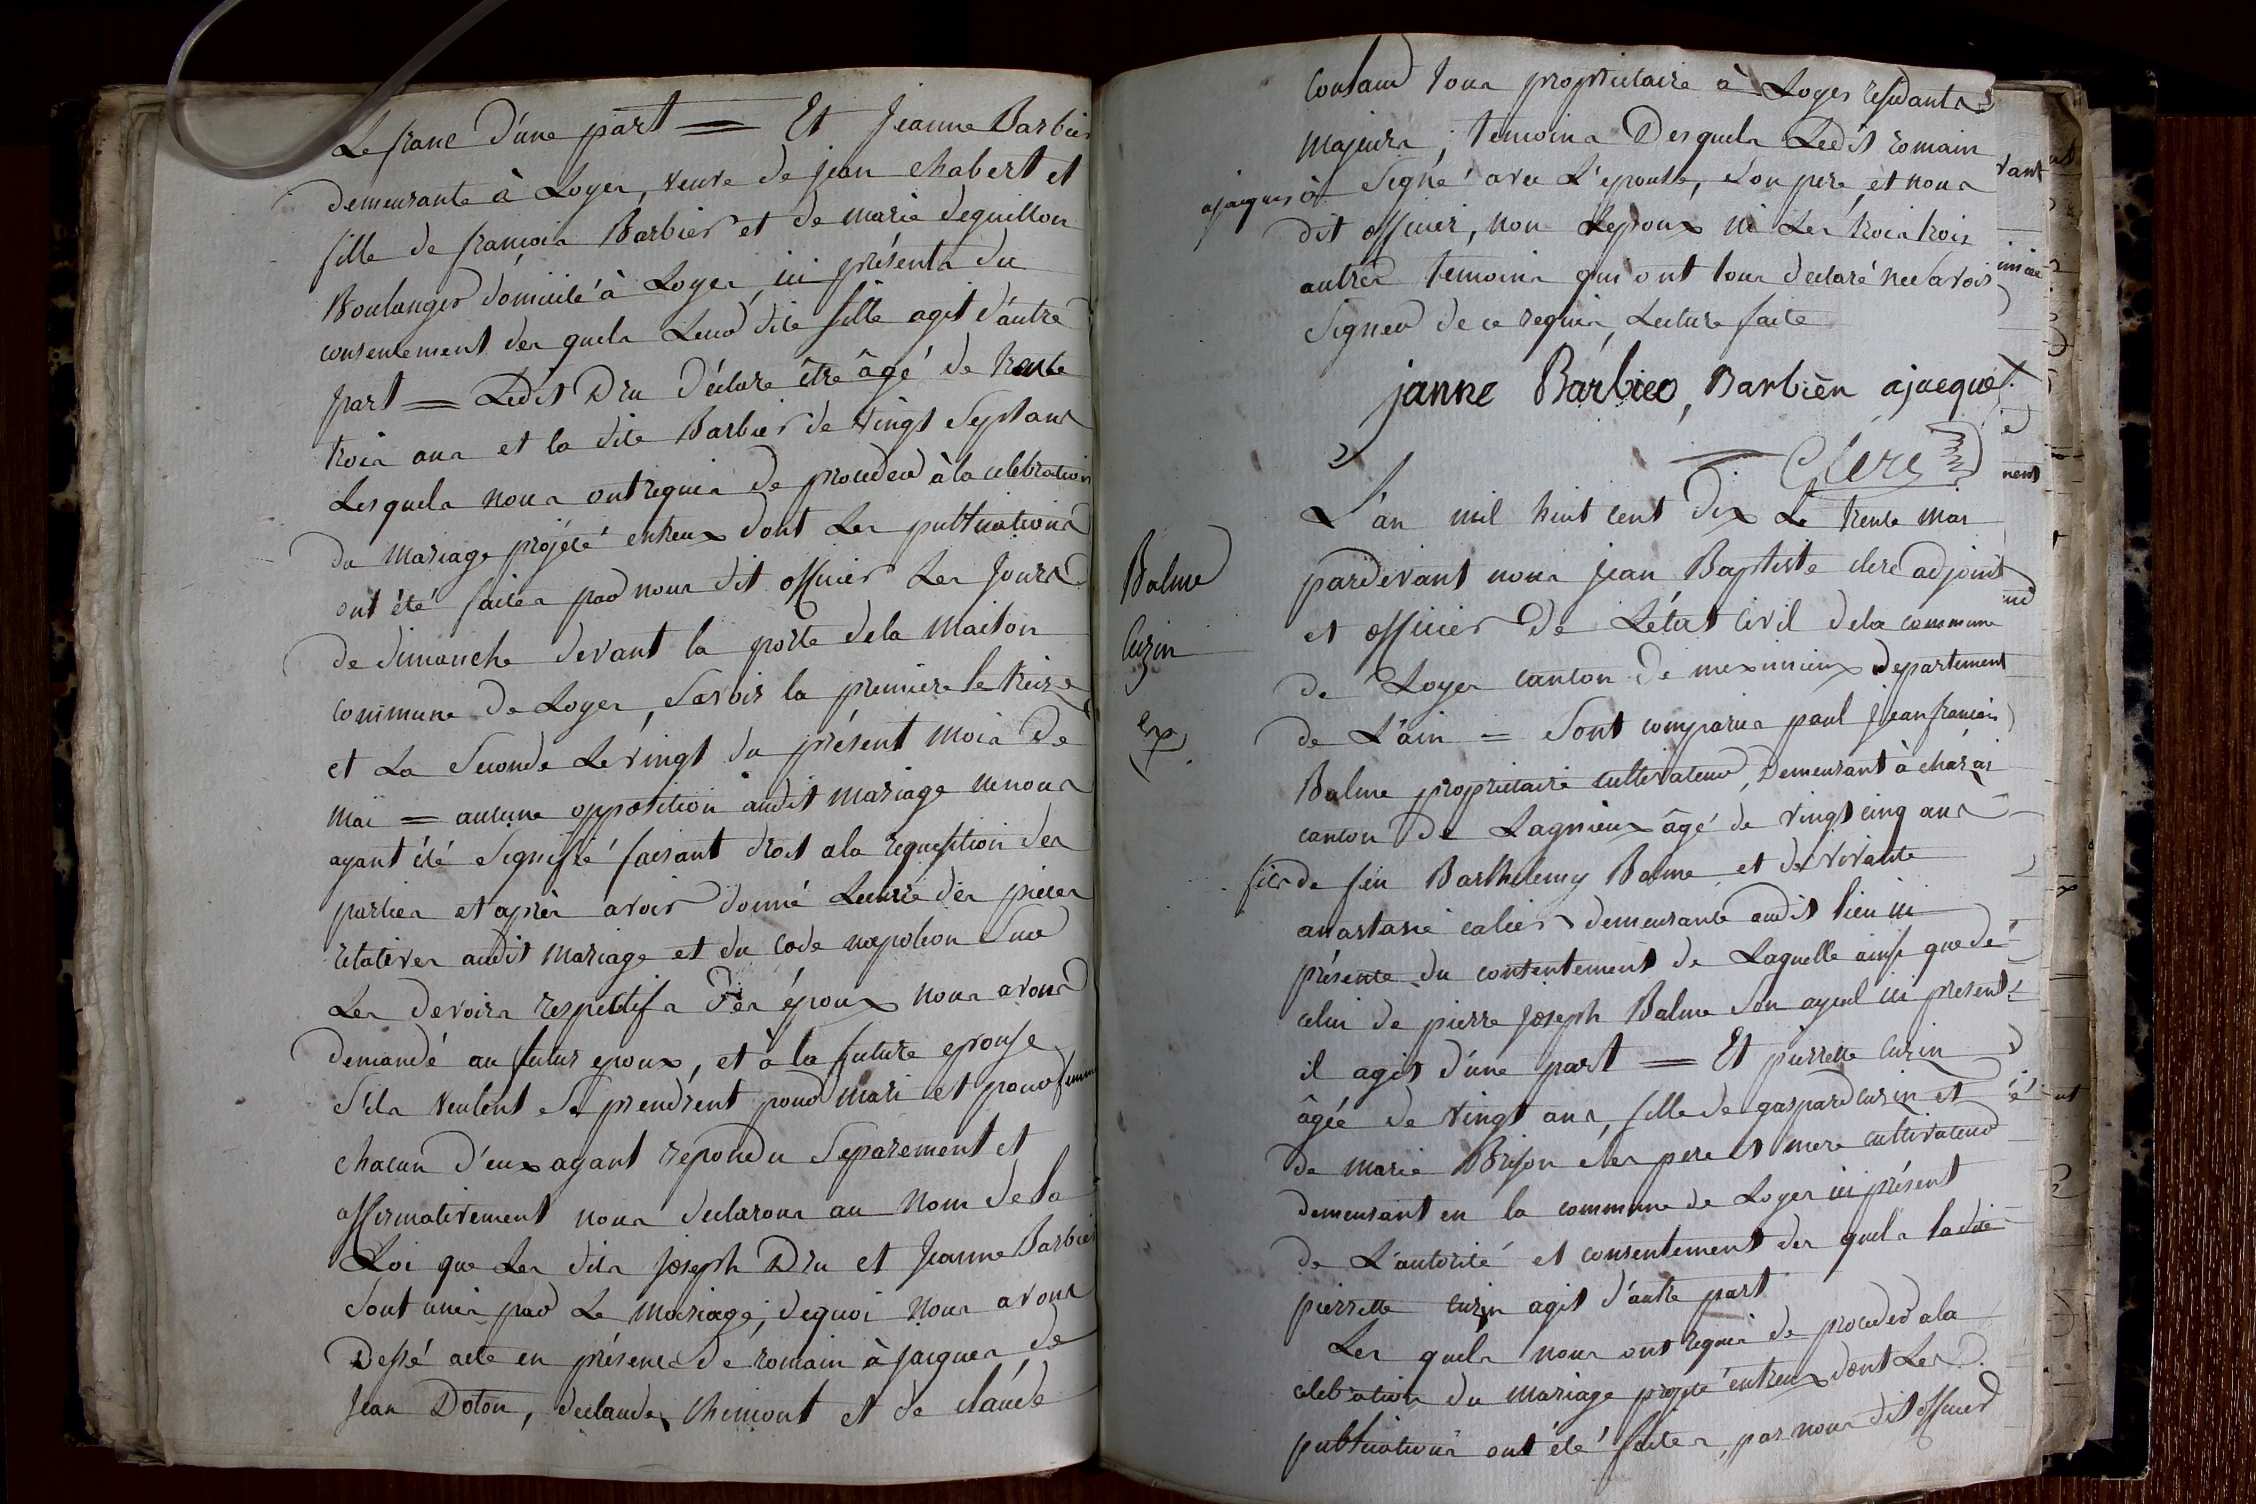 Le franc d'une part = Et Jeanne Barbier
demeurante à Loyes, veuve de jean chabert et
fille de françois Barbier et de marie deguillon
Boulanger domicilié à Loyes, ici présents du
consentement des quels Leur dite fille agit d'autre
part = Ledit Dru déclare être âgé de trente
trois ans et la dite Barbier de vingt Sept ans
Lesquels nous ont requis de proceder à la celebration
du mariage projeté entreux dont Les publications
ont été faites par nous dit officier Les jours
de dimanche devant la porte dela Maison
commune de Loyes, savoir la premiere le treize
et La Seconde Le vingt du présent mois de
mai = aucune opposition audit mariage ne nous
ayant été Signifié faisant droit ala requisition des
parties et après avoir donné Lecture des pieces
relatives audit mariage et du code napoleon Sur
Les devoirs respectifs des époux nous avons
demandé au futur epoux, et à la future epouse
S'ils veulent Se prendrent pour mari et pour femme
chacun d'eux ayant repondu Separement et
affirmativement nous declarons au nom de la
Loi que Les dits joseph Dru et Jeanne Barbier
Sont unis par Le mariage; dequoi nous avons
Dressé acte en présence de romain àjacques de
Jean Doton, declaude, Chimont et de claude
contand tous proprietaire à Loyes residants
majeurs; temoins Desquels Ledit romain
ajacques à Signé avec L'epouse, Son pere, et nous
dit officier, non Lepoux ni Les trois trois
autres temoins qui ont tous declaré ne Savoir
Signer de ce requis, Lecture faite
janne Barbier, Barbièr ajacque
Clerc
L'an mil huit cent dix Le trente mai
Balme
Cuzin
ex
pardevant nous jean Baptiste clerc adjoint
et officier de L'état civil dela commune
de Loyes canton de meximieux departement
de L'ain = Sont comparus paul jean françois
Balme proprietaire cultivateur, Demeurant à
canton de Lagnieux âgé de vingt cinq ans
fils de feu Barthelemy Balme et de vivante
anastasie calier demeurante audit lieu ici
présente du contentement de Laquelle ainsi que de
celui de pierre joseph Balme Son ayeul ici present
il agit d'une part = Et pierrette cuzin
âgée de vingt ans, fille de gaspard cuzin et
de marie Brison Ses pere et mere cultivateur
demeurant en la commune de Loyes ici présent
de L'autorité et consentement des quels ladite
pierrette cuzin agit d'autre part
Les quels nous ont requis de proceder ala
celebration du mariage projeté entreux dont Les
publications ont été faites, par nous dit officier